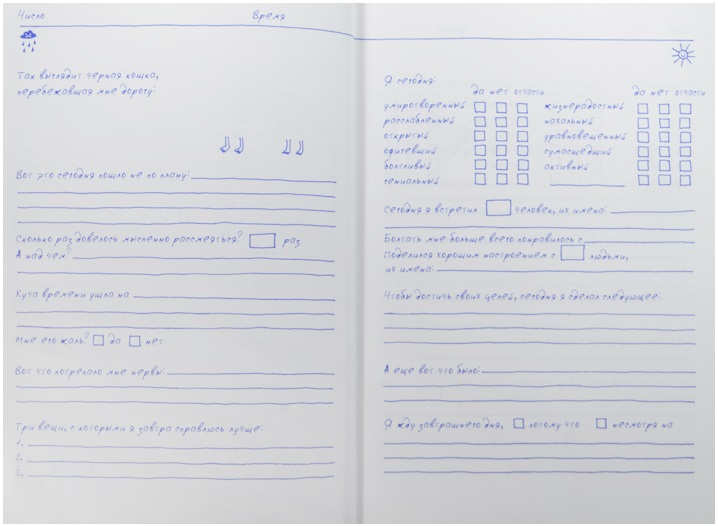 Число Время
Так выглядит черная кошка,
перебежавшая мне дорогу:
Вот это сегодня пошло не по плану:
Сколько раз довелось мысленно рассмеяться? раз
А над чем?
Куча времени ушла на
Мне его жаль? да нет
Вот что потрепало мне нервы:
Три вещи, с которыми я завтра справлюсь лучше:
1.
2.
3.
Я сегодня:
да нет отчасти да нет отчасти
умиротворенный жизнерадостный
расслабленный нахальный
открытый уравновешенный
офигевший сумасшедший
болтливый активный
гениальный
Сегодня я встретил человек, их имена:
Болтать мне больше всего понравилось с
Поделился хорошим настроением с людьми,
их имена:
Чтобы достичь своих целей, сегодня я сделал следующее:
А еще вот что было:
Я жду завтрашнего дня, потому что несмотря на